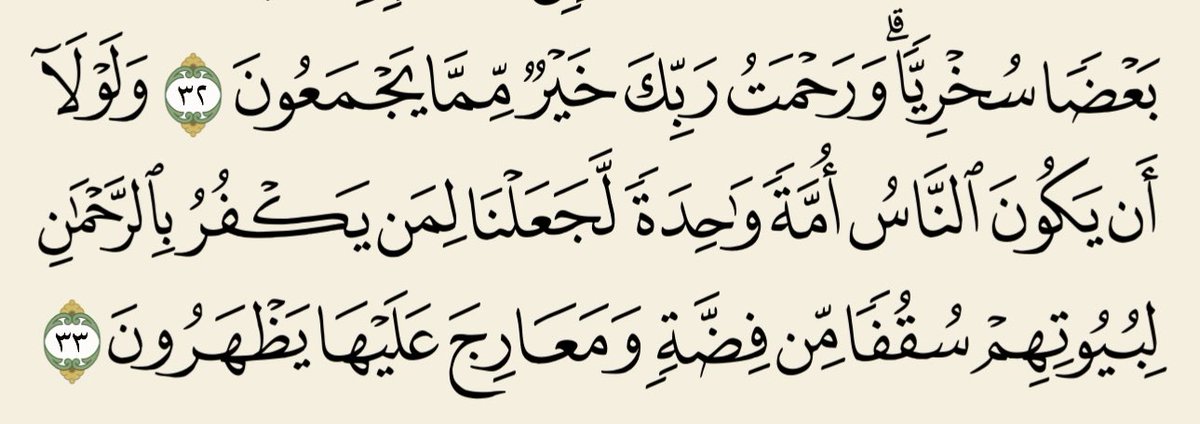 بَعْضٗا سُخْرِيّٗاۗ وَرَحْمَتُ رَبِّكَ خَيْرٞ مِّمَّا يَجْمَعُونَ ٣٢ وَلَوْلَآ
أَن يَكُونَ ٱلنَّاسُ أُمَّةٗ وَٰحِدَةٗ لَّجَعَلْنَا لِمَن يَكْفُرُ بِٱلرَّحْمَٰنِ
لِبُيُوتِهِمْ سُقُفٗا مِّن فِضَّةٖ وَمَعَارِجَ عَلَيْهَا يَظْهَرُونَ ٣٣